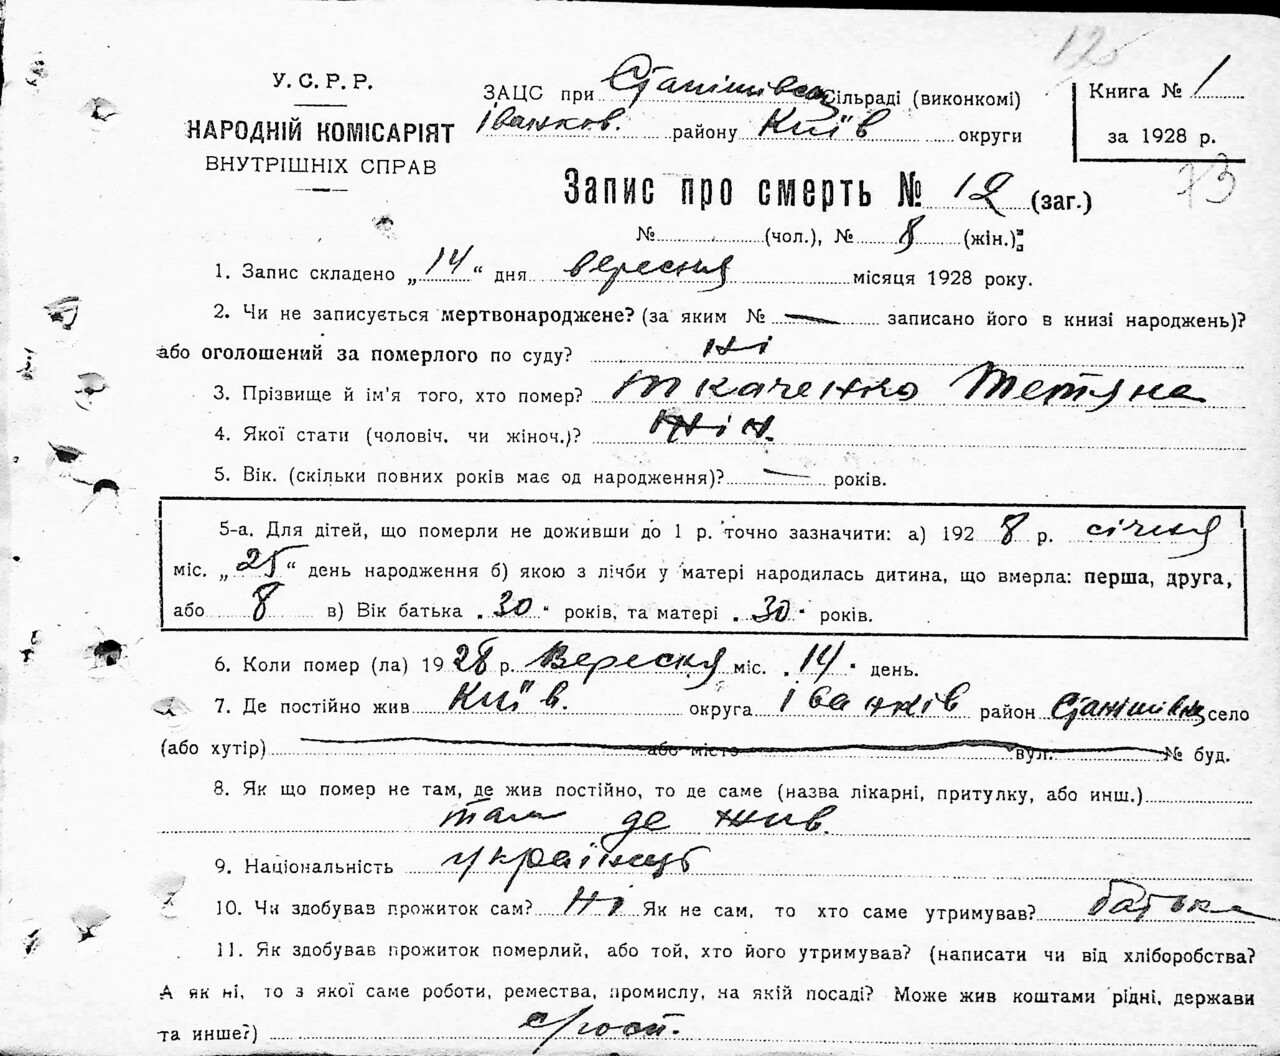 12
У. С. Р. Р.
НАРОДНІЙ КОМІСАРІЯТ
ВНУТРІШНІХ СПРАВ
ЗАЦС при Станішівськ сільраді (виконкомі)
Іванков. району Київ округи
Книга № 1
за 1928 р.
73
Запис про смерть № 12 (заг.)
№ (чол.), № 8 (жін.)
1. Запис складено „14“ дня вересня місяця 1928 року.
2. Чи не записується мертвонароджене? (за яким № — записано його в книзі народжень)?
або оголошений за померлого по суду? ні
3. Прізвище й ім'я того, хто помер? Ткаченко Тетяна
4. Якої стати (чоловіч. чи жіноч.)? жін.
5. Вік. (скільки повних років має од народження)? — років.
5-а. Для дітей, що померли не доживши до 1 р. точно зазначити: а) 1928 р. січня
міс. „25“ день народження б) якою з лічби у матері народилась дитина, що вмерла: перша, друга,
або 8 в) Вік батька 30 років, та матері 30 років.
6. Коли помер (ла) 1928 р. Вересня міс. 14 день.
7. Де постійно жив Київ. округа Іванків район село
(або хутір) або місто вул. № буд.
8. Як що помер не там, де жив постійно, то де саме (назва лікарні, притулку, або инш.)
там де жив.
9. Національність
10. Чи здобував прожиток сам? Ні Як не сам, то хто саме утримував? батьки
11. Як здобував прожиток померлий, або той, хто його утримував? (написати чи від хліборобства?
А як ні, то з якої саме роботи, ремества, промислу, на якій посаді? Може жив коштами рідні, держави
та инше?)